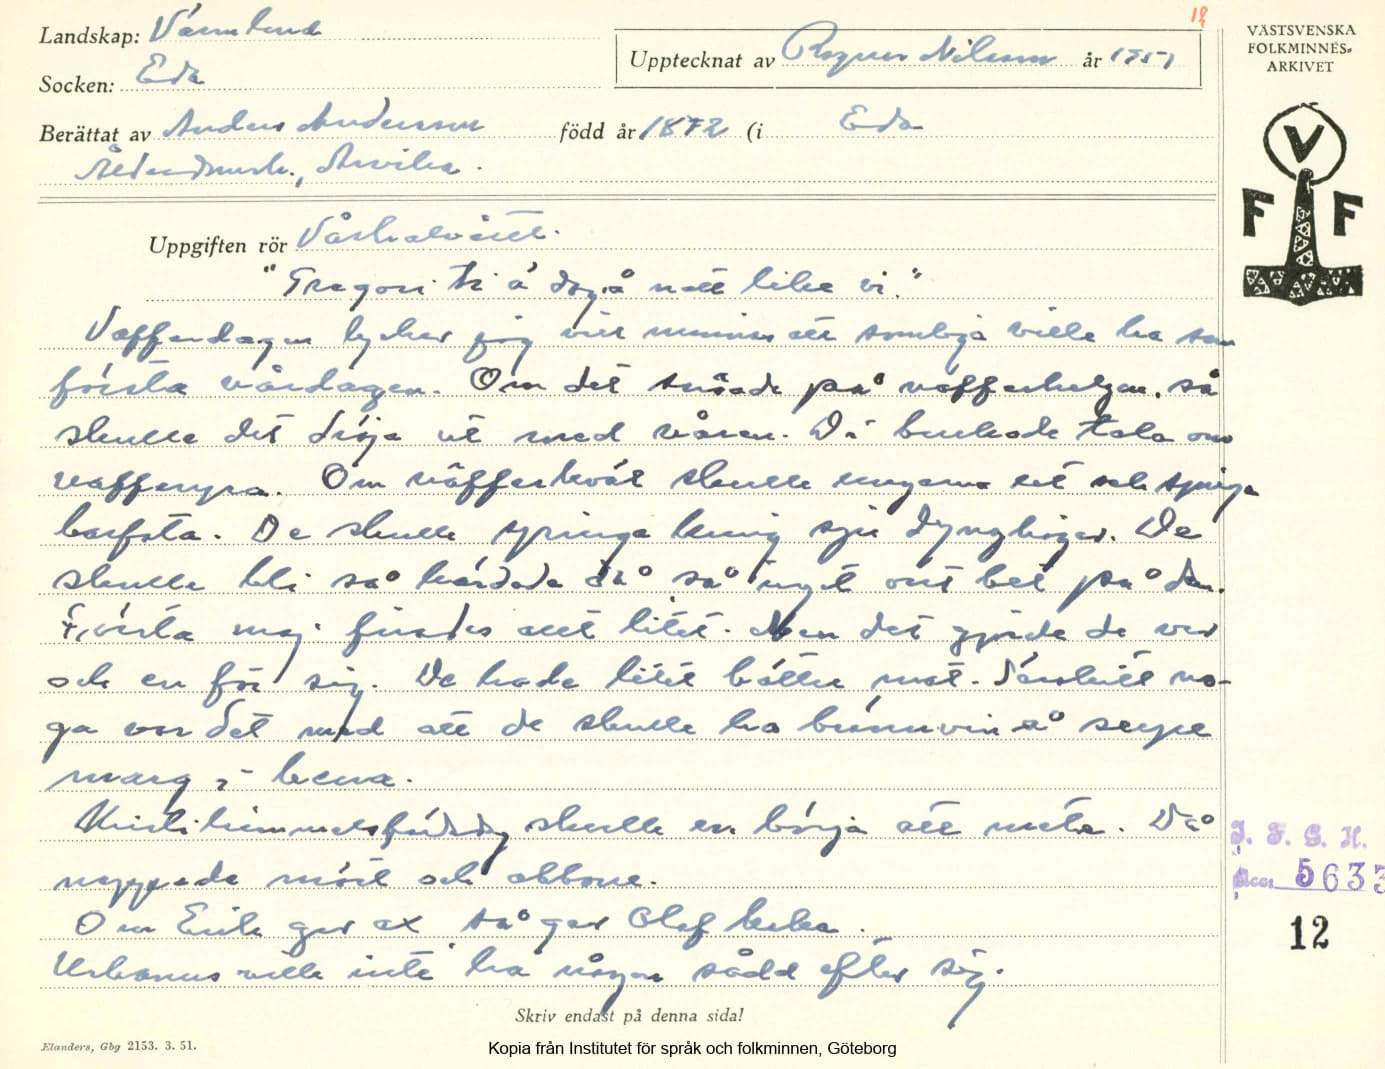 Landskap: Värmland
19
VÄSTSVENSKA
FOLKMINNES-
ARKIVET
Upptecknat av Ragnar Nilsson år 1951
Socken: Eda
Berättat av Anders Andersson född år 1872 (i Eda
Ålderdomsh., Arvika.
V
F F
Uppgiften rör Vårhalvåret.
"Gregori ti å dag å natt lika vi."
Vafferdagen lycker jag vill minnas att somliga ville ha som
första vårdagen. Om det snöade på vafferhelgen, så
skulle det dröja ut med våren. Di brukade tala om
vafferyra. Om väfferkväl skulle ungarna ut och springa
barfota. De skulle springa kring sju dynghögar. De
skulle bli så härdade då så inget ont bet på dem.
Första maj firades allt litet. Men det gjorde de var
och en för sig. De hade litet bättre mat. Särskilt no-
ga var det med att de skulle ha brännvin å supe
marg i bena.
Kristihimmelsfärdsdag skulle en börja att meta. Då
nappade mört och abborre.
Om Erik ger ax så ger Olof kaka.
Urbanus ville inte ha någon sådd efter sig.
I. F. G. H.
Acc. 5633
12
Skriv endast på denna sida!
Elanders, Gbg 2153. 3. 51.
Kopia från Institutet för språk och folkminnen, Göteborg